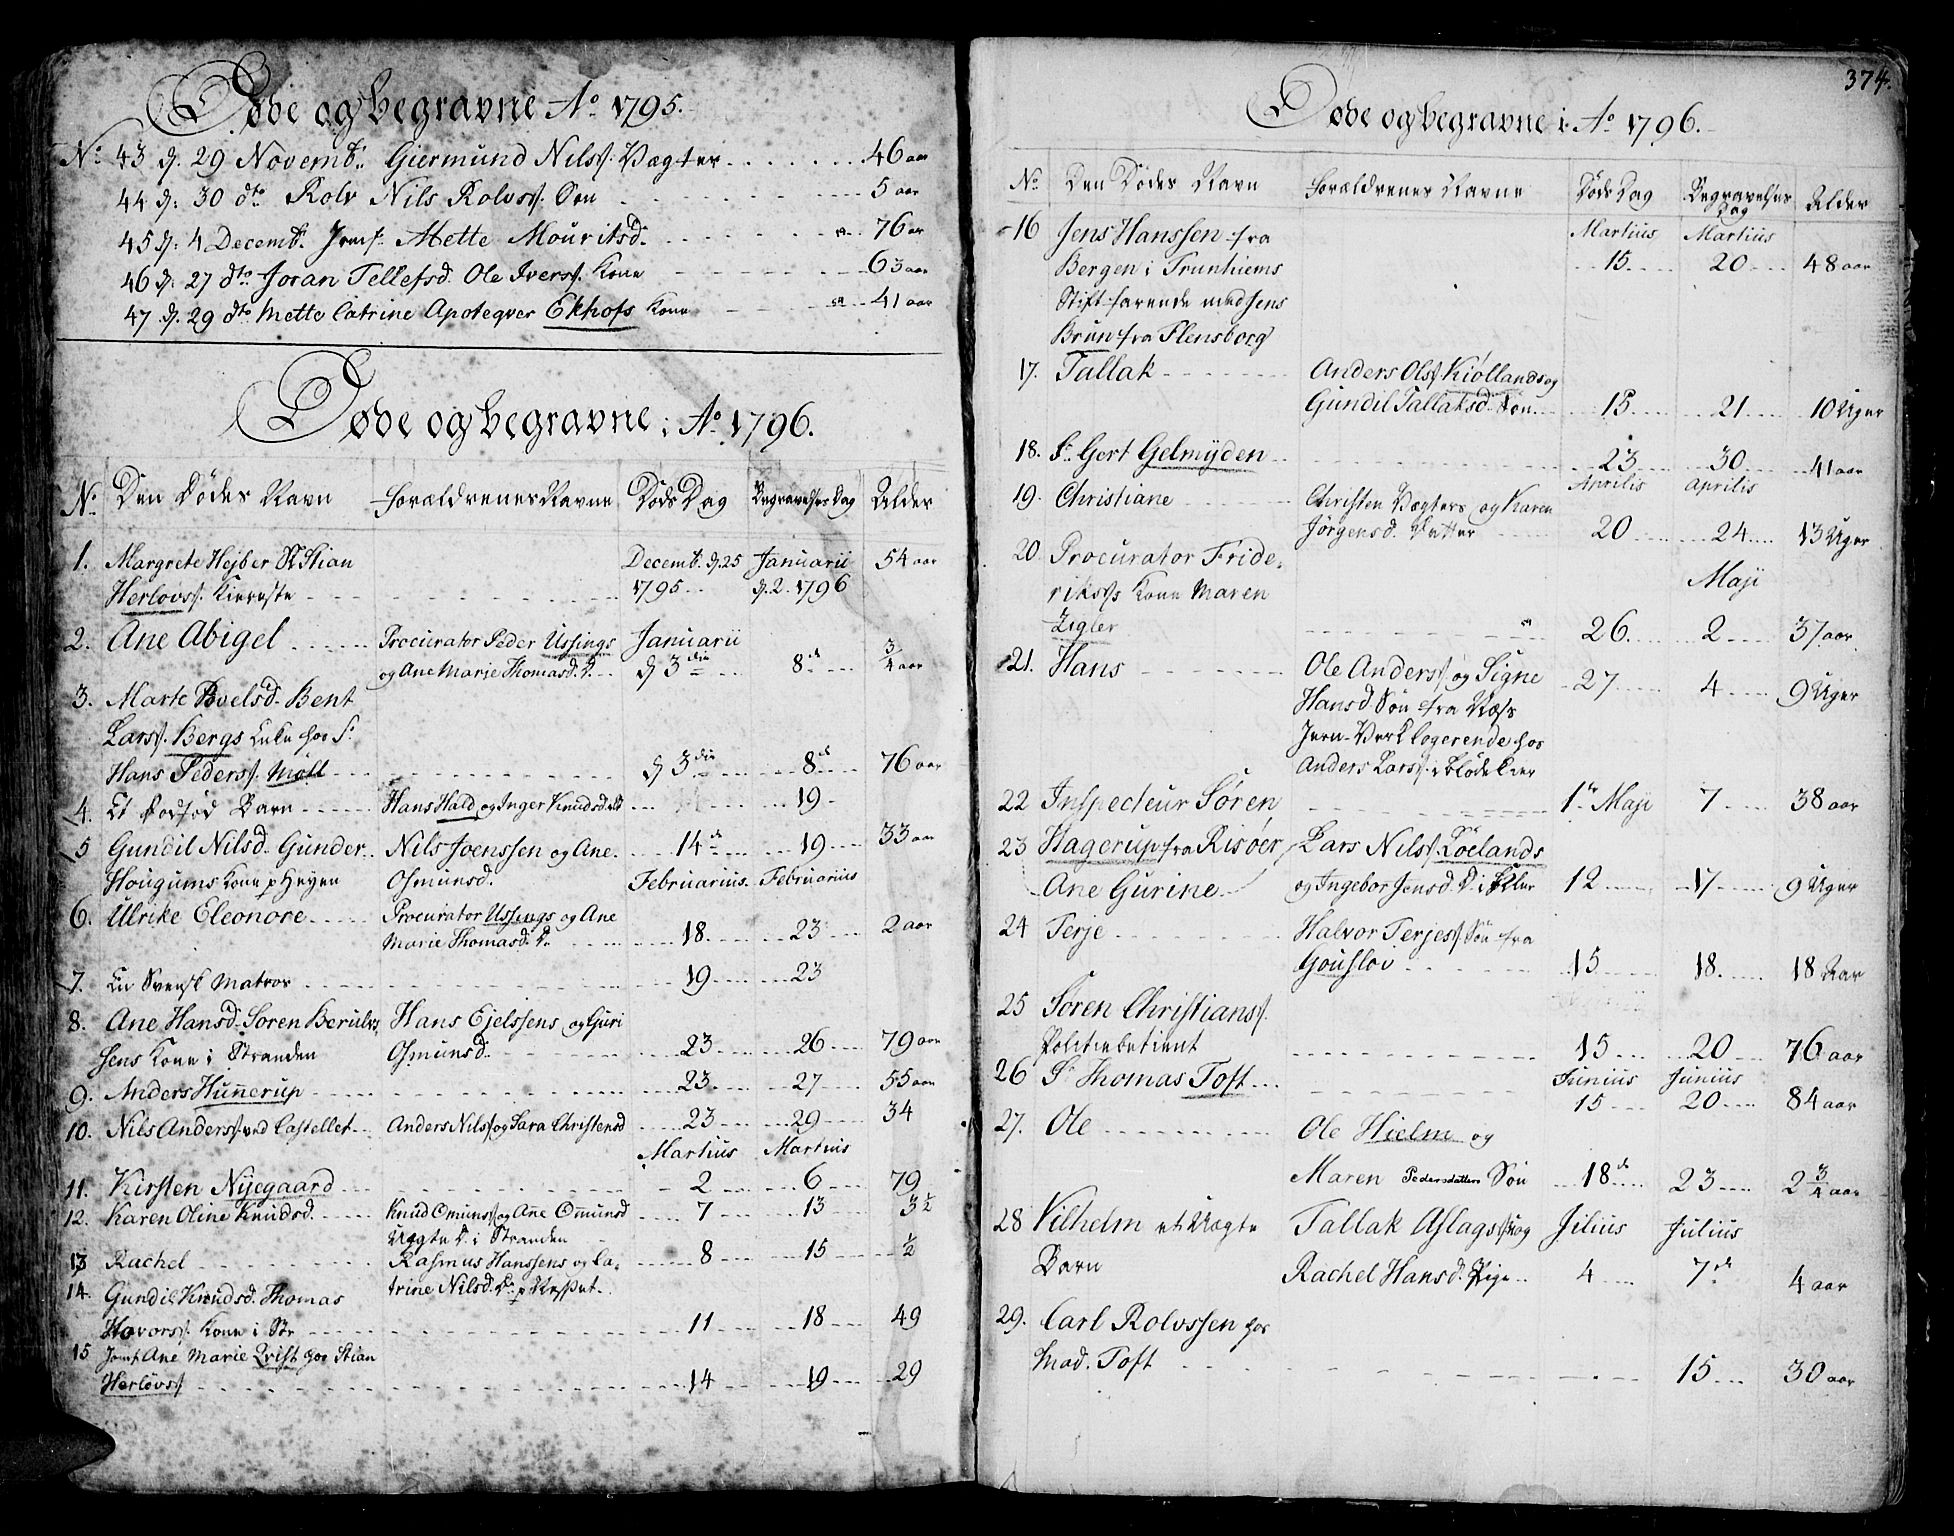 Døde og begravne Ao 1795.
No. 43 d. 29 Novemb. Giermund Nilss. Vægter 46 aar
44 d. 30 dto Rolv Nils Rolvss. Søn 5 aar
45 d. 4 Decemb. Jomf. Mette Mouritsd. 76 aar
46 d. 27 dto Joran Tellefsd. Ole Iverss. Kone 63 aar
47 d. 29 dto Mette Catrine Apoteqver Ekhofs Kone 41 aar
Døde og begravne i Ao 1796.
No. Den Dødes Navn Forældrenes Navne Døds Dag Begravelses Dag Alder
1. Margrete Hejber Stian Decemb. d. 25 Januarii 54 aar
Herlovs. Kiereste 1795 d. 2. 1796
2. Ane Abigel Procurator Peder Ussings Januarii
og Ane Marie Thomasd. D. d 3die 8d 3/4 aar
3. Marte Poelsd. Bent
Larss. Bergs Enke hos Sr
Hans Pederss. Møll d 3die 8d 76 aar
4. Et Dødfød Barn Hans Hald og Inger Knudsd. 19
5 Gundil Nilsd. Gunder Nils Joenssen og Ane 14d 19 33 aar
Hougums Kone p Heyen Osmunsd. Februarius Februarius
6. Ulrike Eleonore Procurator Ussings og Ane
Marie Thomasd. D. 18 23 2 aar
7. En Svensk Matros 19 23
8. Ane Hansd. Soren Beruls Hans Ejelssens og Guri
sens Kone i Stranden Osmunsd. 23 26 79 aar
9. Anders Hunnerup 23 27 55 aar
10. Nils Anderss. ved Castellet Anders Nilss. og Sara Christensd 23 29 34
Martius Martius
11. Kirsten Nyegaard 2 6 79
12. Karen Oline Knudsd. Knud Omunss. og Ane Omunsd 7 13 3 1/2
Uægte D. i Stranden
13 Rachel Rasmus Hanssens og Ca- 8 15 1/2
14. Gundil Knudsd. Thomas trine Nilsd. D.
Hovorss. Kone i Str 11 18 49
15 Jomf. Ane Marie Qvist hos Stian
Herlövss. 14 19 29
374.
Døde og begravne i Ao 1796.
No. Den Dødes Navn Forældrenes Navne Døds Dag Begravelses Dag Alder
16 Jens Hanssen fra Martius Martius
Bergen i Trunhiems 15 20 48 aar
Stift farende med Jens
Brun fra Flensborg
17. Tallak Anders Olss. Kiöllands og
Gundil Tallaksd. Søn 15 21 10 Uger
18. Sr. Gert Gelmyden 23 30 41 aar
Aprilis Aprilis
19. Christiane Christen Vægters og Karen
Jörgensd. Datter 20 24 13 Uger
20. Procurator Fride-
rikss. Kone Maren Maji
Zigler 26. 2 37 aar
21. Hans Ole Anderss. og Signe 27 4 9 Uger
Hansd. Søn fra Næss
Jern-Verk logerende hos
Anders Larss. i Blödekier
22 Inspecteur Sören 1te Maji 7 38 aar
23 Hagerup fra Risöer Lars Nilss. Löelands
Ane Gurine og Ingebor Jensd. D. 12 17 9 Uger
24 Terje Halvor Terjess. Søn fra
15 18. 18 Aar
25 Soren Christianss.
Politiebetient 15 20 76 aar
26 Sr. Thomas Toft Junius Junius
15 20 84 aar
27. Ole Ole Hielm og
Maren Pedersdatters Søn 18d 23 2 3/4 aar
28 Vilhelm et Uægte Tallak Aslagss. og Jilius Julius
Barn Rachel Hansd. Pige 4 7d 4 aar
29. Carl Rolvssen hos
Mad. Toft 15 30 aar